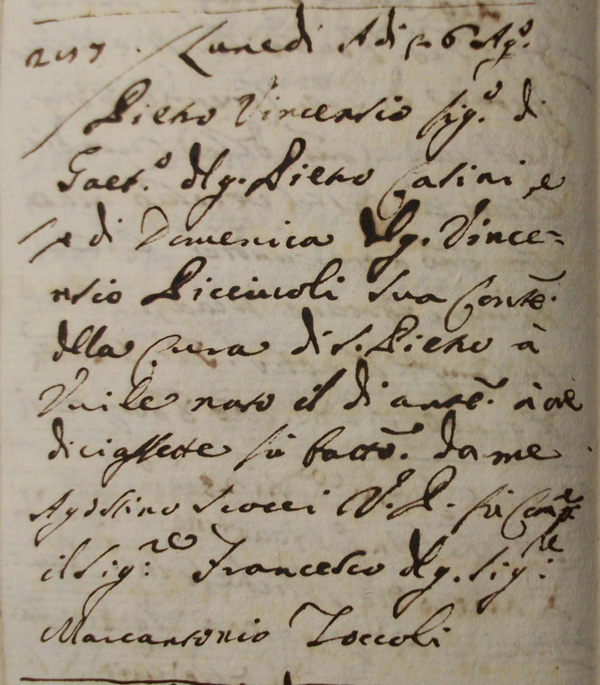 Lunedì A di 6 Ag.º
Pietro Vincensio fig.º di
Gaet.º dlg. Pietro Casini, e
di Domenica dlg. Vince=
nsio Picciuoli sua Conte.
della Cura di S. Pietro à
nato il di ante. à ore
diciassette fù batto. da me
Agostino Scocci V. P. fù Comp.e
il Sig:re Francesco dlg. Sig:re
Marcantonio Zoccoli